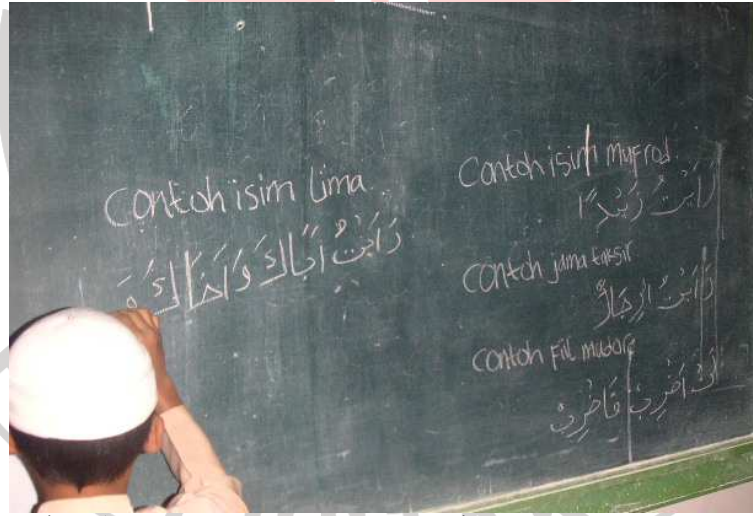 Contoh isim lima
رَاَيْتُ اَبَاكَ وَاَخَاكَ وَ
Contoh isim mufrod
رَاَيْتُ زَيْدًا
Contoh jama taksir
رَاَيْتُ الرِجَالَ
Contoh fiil mudore